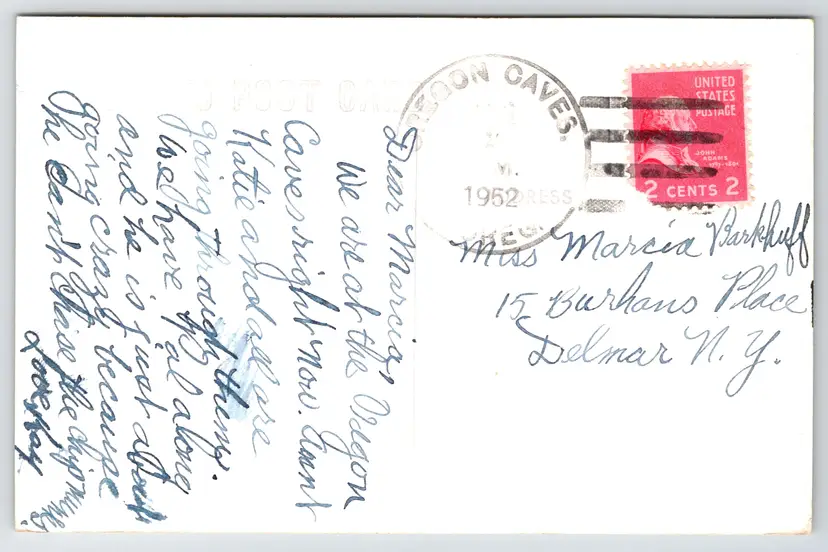 POST CARD
OREGON CAVES,
M.
1952
ADDRESS
OREG.
UNITED
STATES
POSTAGE
JOHN
ADAMS
1797-1801
2 CENTS 2
Dear Marcia,
We are at the Oregon
Caves right now. Aunt
Katie and all are
going through them.
We have Pal along
and he is just about
going crazy because
he can't chase the chipmunks.
Love Kay
Miss Marcia Barkhuff
15 Burhans Place
Delmar N. Y.